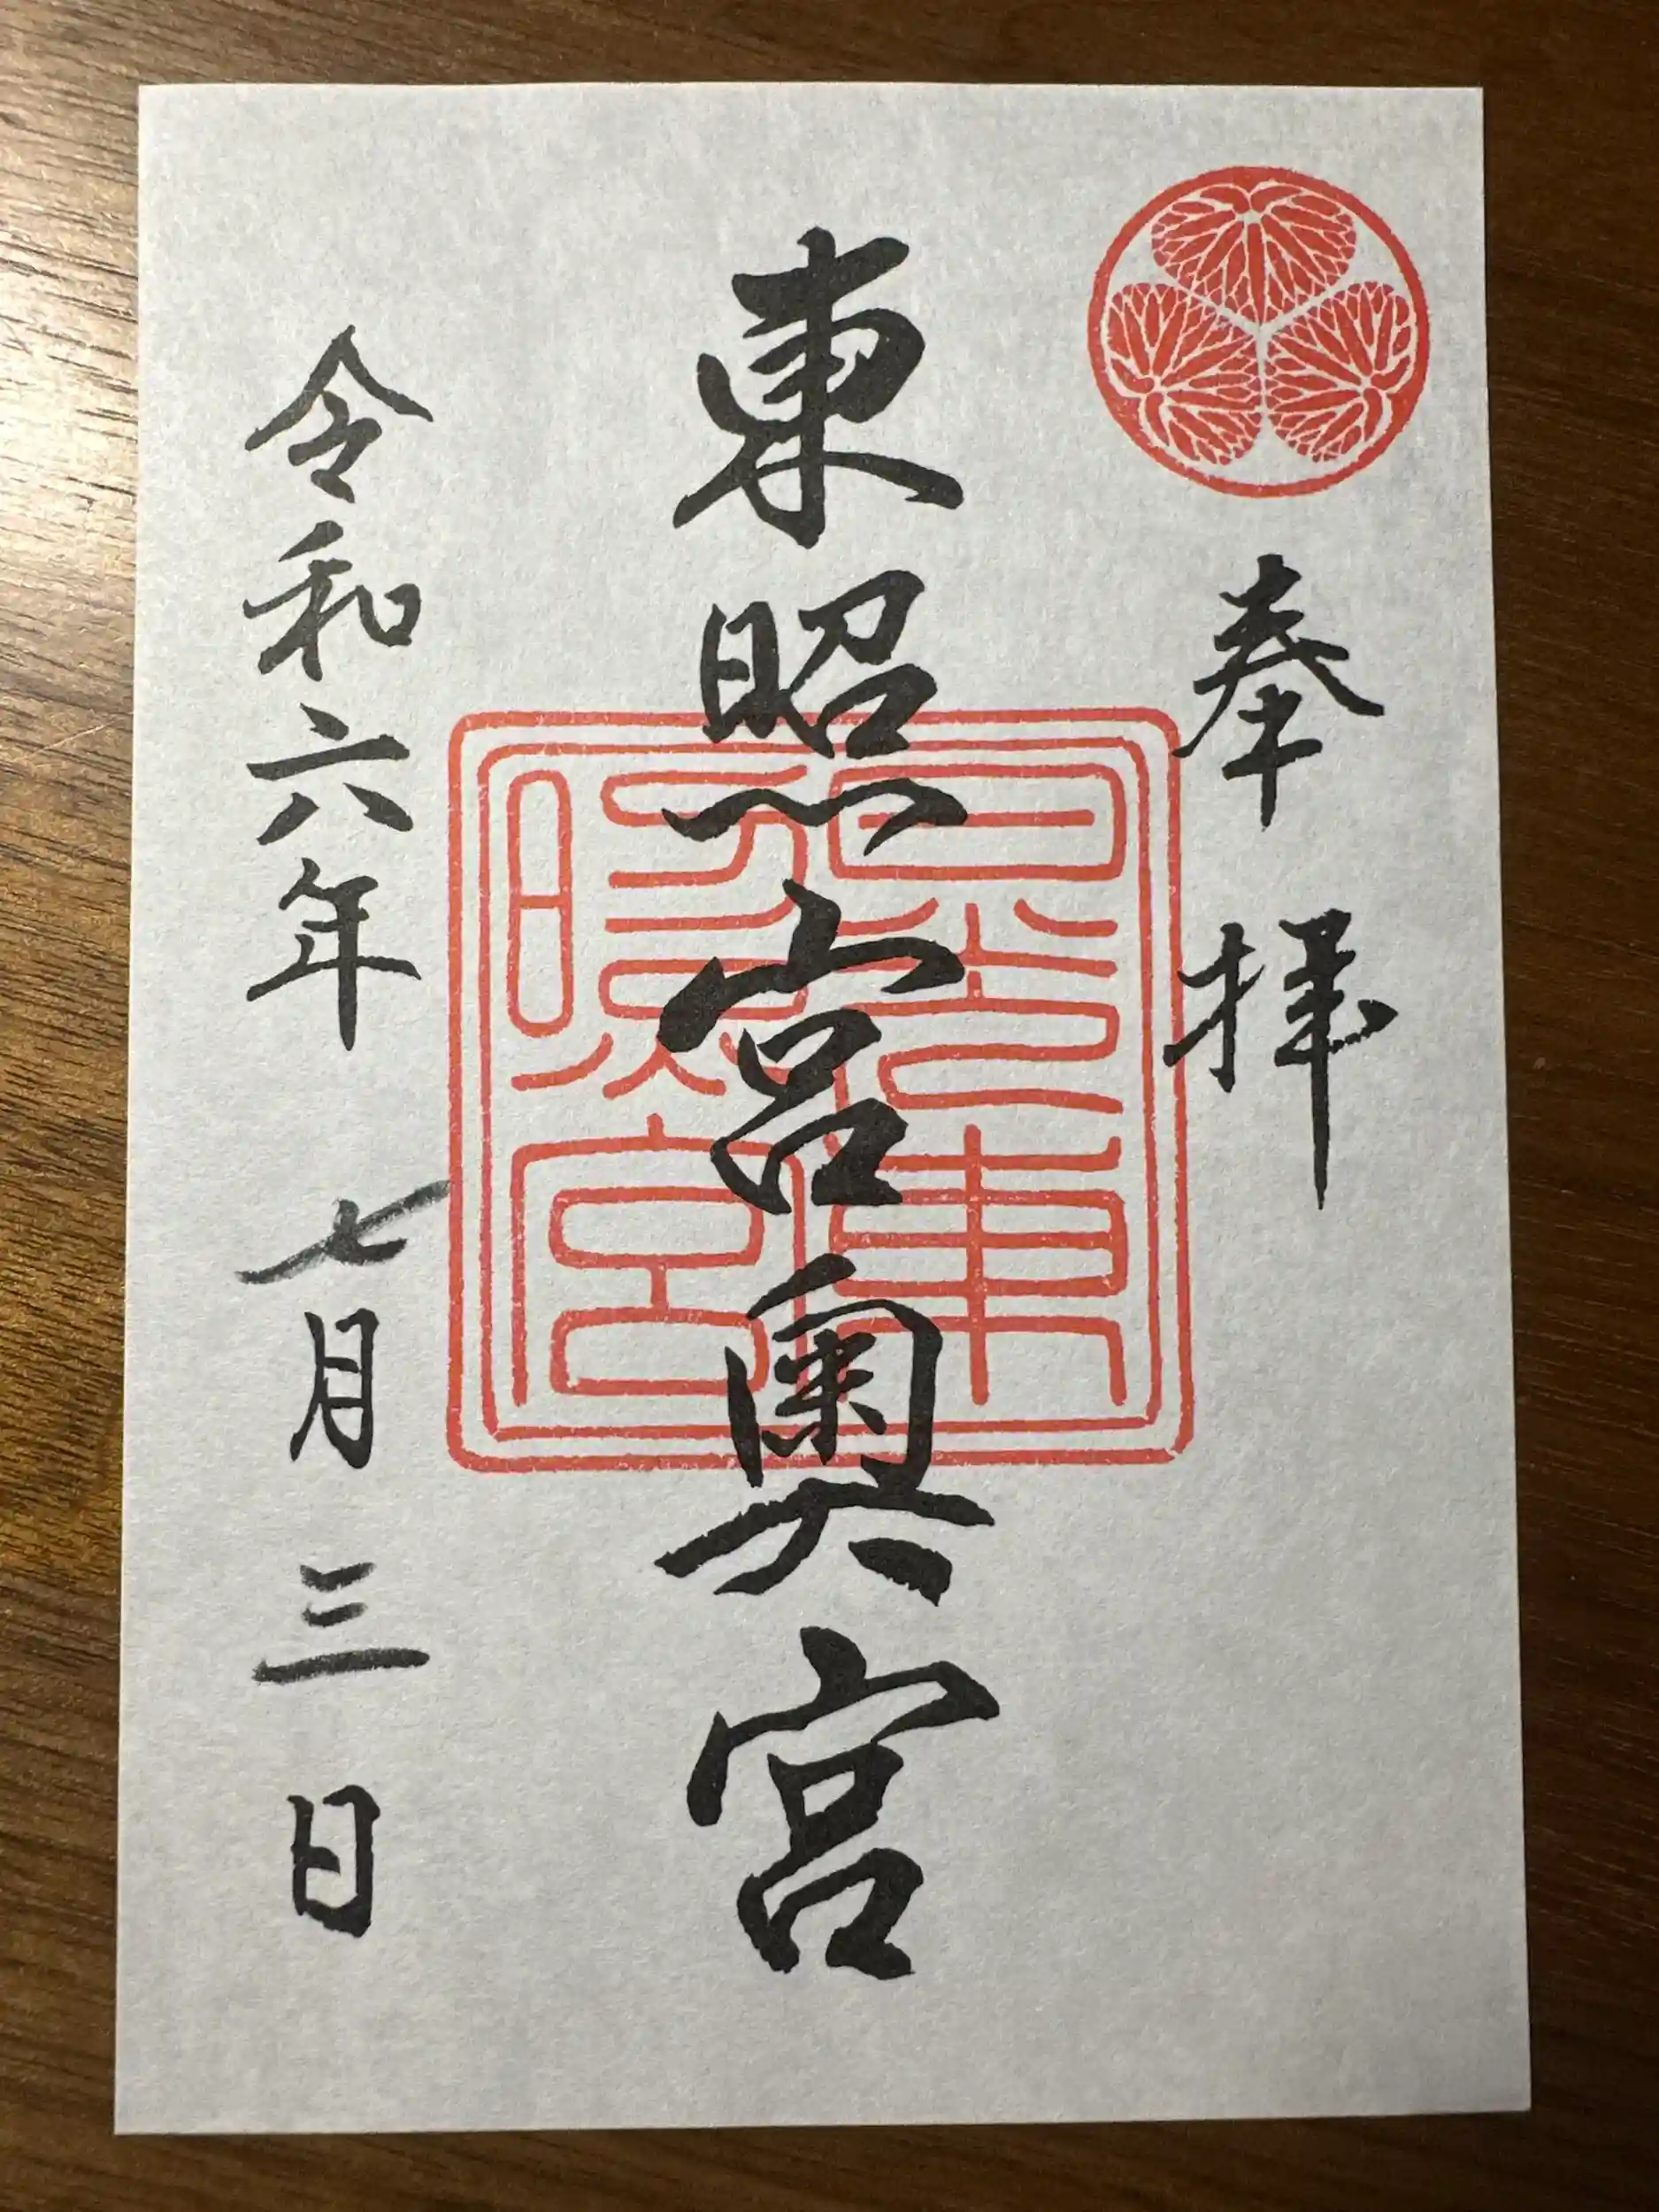 奉拝
東照宮奥宮
令和六年七月三日